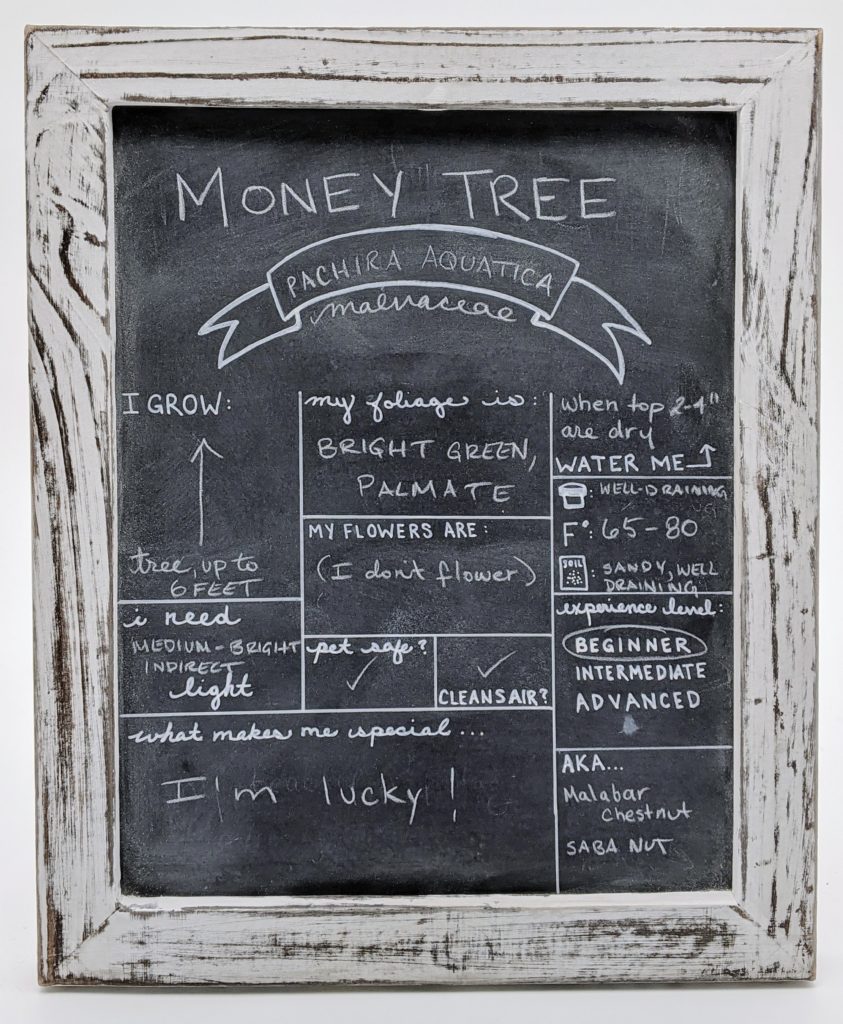 MONEY TREE
PACHIRA AQUATICA
malvaceae
I GROW:
tree, up to
6 FEET
i need
MEDIUM-BRIGHT
INDIRECT
light
my foliage is:
BRIGHT GREEN,
PALMATE
MY FLOWERS ARE:
(I don't flower)
pet safe?
✓
✓
CLEANS AIR?
when top 2-4"
are dry
WATER ME
: WELL-DRAINING
F°: 65-80
SOIL
: SANDY, WELL
DRAINING
experience level:
BEGINNER
INTERMEDIATE
ADVANCED
what makes me special...
I'm lucky!
AKA...
Malabar
Chestnut
SABA NUT